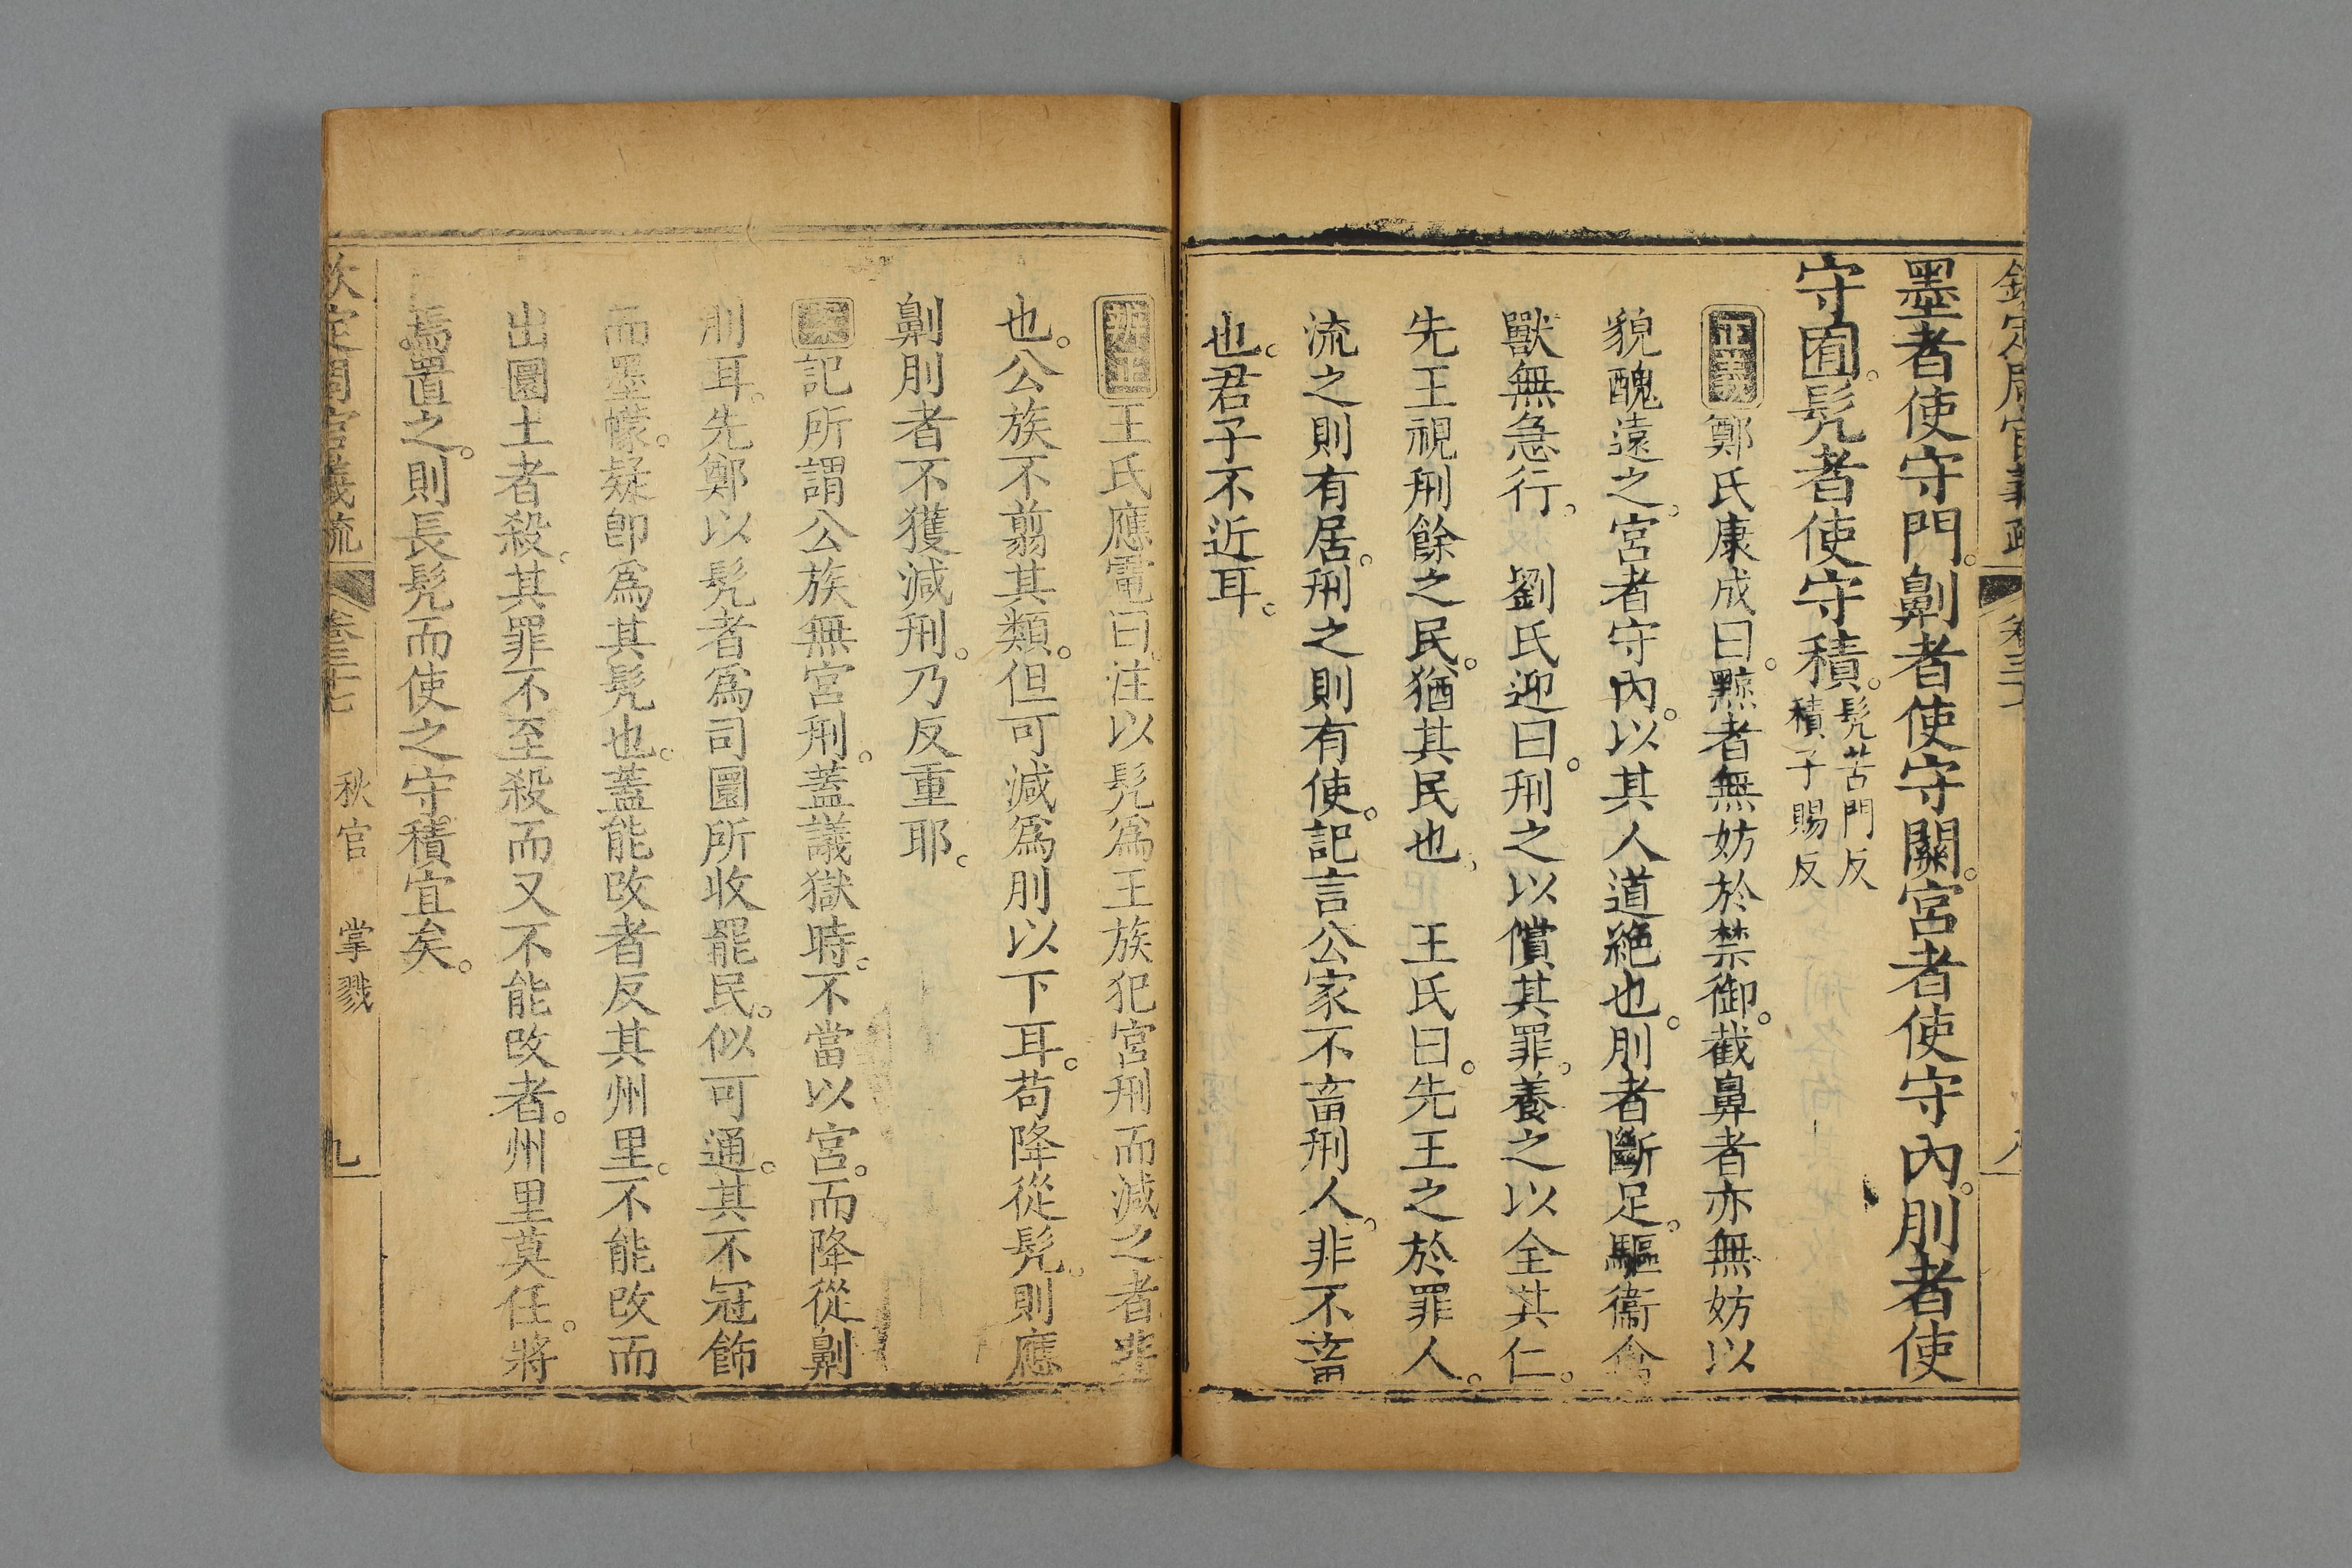 欽定周官義疏 卷三十 八
墨者使守門。劓者使守關。宮者使守內。刖者使
守囿。髡者使守積。髡苦門反
積子賜反
正義鄭氏康成曰。黥者無妨於禁御。截鼻者亦無妨以
貌醜遠之。宮者守內。以其人道絕也。刖者斷足。驅衞禽
獸無急行。 劉氏迎曰。刑之以償其罪。養之以全其仁。
先王視刑餘之民。猶其民也。 王氏曰。先王之於罪人。
流之則有居。刑之則有使。記言公家不畜刑人。非不畜
也。君子不近耳。
辨正王氏應電曰。注以髡爲王族犯宮刑而減之者非
也。公族不翦其類。但可減爲刖以下耳。苟降從髡。則應
劓刖者不獲減刑。乃反重耶。
案記所謂公族無宮刑。蓋議獄時。不當以宮。而降從劓
刖耳。先鄭以髡者爲司圜所收罷民。似可通。其不冠飾
而墨幪。疑卽爲其髡也。蓋能改者反其州里。不能改而
出圜土者殺。其罪不至殺而又不能改者。州里莫任。將
焉置之。則長髡而使之守積宜矣。
欽定周官義疏 卷三十七 秋官 掌戮 九